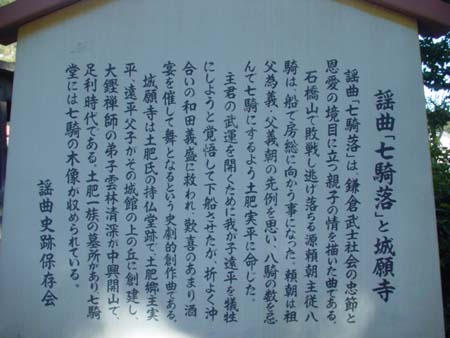 謡曲「七騎落」と城願寺
謡曲「七騎落」は、鎌倉武士社会の忠節と
恩愛の境目に立つ親子の情を描いた曲である。
石橋山で敗戦し逃げ落ちる源頼朝主従八
騎は、船で房総に向かう事になった。頼朝は祖
父為義、父義朝の先例を思い、八騎の数を忌
んで七騎にするよう土肥実平に命じた。
主君の武運を開くために我が子遠平を犠牲
にしようと覚悟して下船させたが、折よく沖
合いの和田義盛に救われ、歓喜のあまり酒
宴を催して舞となるという史劇的創作曲である。
城願寺は土肥氏の持仏堂跡で、土肥郷主実
平、遠平父子がその城館の上の丘に創建し、
大鑑禅師の弟子雲林清深が中興開山で、
足利時代である。土肥一族の墓所があり七騎
堂には七騎の木像が収められている。
謡曲史跡保存会